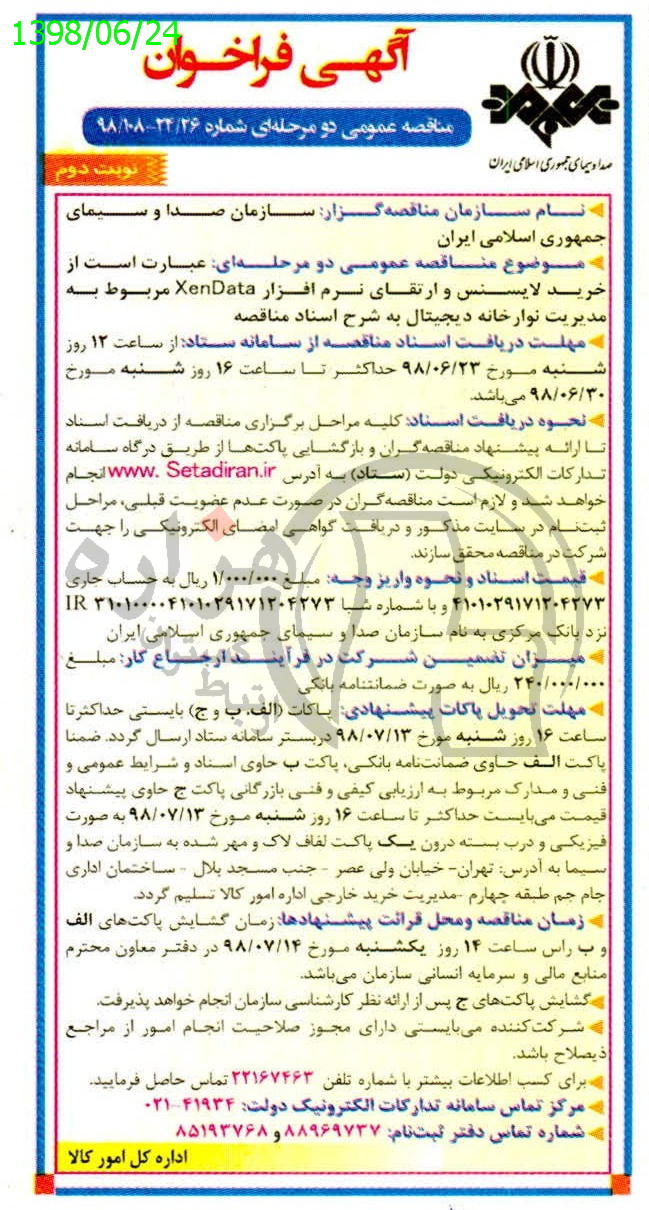 1398/06/24
آگهی فراخوان
مناقصه عمومی دو مرحله‌ای شماره ۲۴/۲۶-۹۸/۱۰۸
صدا و سیمای جمهوری اسلامی ایران
نوبت دوم
نام سازمان مناقصه‌گزار: سازمان صدا و سیمای
جمهوری اسلامی ایران
موضوع مناقصه عمومی دو مرحله‌ای: عبارت است از
خرید لایسنس و ارتقای نرم افزار XenData مربوط به
مدیریت نوارخانه دیجیتال به شرح اسناد مناقصه
مهلت دریافت اسناد مناقصه از سامانه ستاد: از ساعت ۱۲ روز
شنبه مورخ ۹۸/۰۶/۲۳ حداکثر تا ساعت ۱۶ روز شنبه مورخ
۹۸/۰۶/۳۰ می‌باشد.
نحوه دریافت اسناد: کلیه مراحل برگزاری مناقصه از دریافت اسناد
تا ارائه پیشنهاد مناقصه‌گران و بازگشایی پاکت‌ها از طریق درگاه سامانه
تدارکات الکترونیکی دولت (ستاد) به آدرس www. Setadiran.ir انجام
خواهد شد و لازم است مناقصه‌گران در صورت عدم عضویت قبلی، مراحل
ثبت‌نام در سایت مذکور و دریافت گواهی امضای الکترونیکی را جهت
شرکت در مناقصه محقق سازند.
قیمت اسناد و نحوه واریز وجه: مبلغ ۱/۰۰۰/۰۰۰ ریال به حساب جاری
۴۱۰۱۰۲۹۱۷۱۲۰۴۲۷۳ و با شماره شبا IR ۳۱۰۱۰۰۰۰۴۱۰۱۰۲۹۱۷۱۲۰۴۲۷۳
نزد بانک مرکزی به نام سازمان صدا و سیمای جمهوری اسلامی ایران
میزان تضمین شرکت در فرآیند ارجاع کار: مبلغ
۲۴۰/۰۰۰/۰۰۰ ریال به صورت ضمانتنامه بانکی
مهلت تحویل پاکات پیشنهادی: پاکات (الف، ب و ج) بایستی حداکثر تا
ساعت ۱۶ روز شنبه مورخ ۹۸/۰۷/۱۳ دربستر سامانه ستاد ارسال گردد. ضمنا
پاکت الف حاوی ضمانت‌نامه بانکی، پاکت ب حاوی اسناد و شرایط عمومی و
فنی و مدارک مربوط به ارزیابی کیفی و فنی بازرگانی پاکت ج حاوی پیشنهاد
قیمت می‌بایست حداکثر تا ساعت ۱۶ روز شنبه مورخ ۹۸/۰۷/۱۳ به صورت
فیزیکی و درب بسته درون یک پاکت لفاف لاک و مهر شده به سازمان صدا و
سیما به آدرس: تهران- خیابان ولی عصر - جنب مسجد بلال - ساختمان اداری
جام جم طبقه چهارم -مدیریت خرید خارجی اداره امور کالا تسلیم گردد.
زمان مناقصه ومحل قرائت پیشنهادها: زمان گشایش پاکت‌های الف
و ب راس ساعت ۱۴ روز یکشنبه مورخ ۹۸/۰۷/۱۴ در دفتر معاون محترم
منابع مالی و سرمایه انسانی سازمان می‌باشد.
گشایش پاکت‌های ج پس از ارائه نظر کارشناسی سازمان انجام خواهد پذیرفت.
شرکت‌کننده می‌بایستی دارای مجوز صلاحیت انجام امور از مراجع
ذیصلاح باشد.
برای کسب اطلاعات بیشتر با شماره تلفن ۲۲۱۶۷۴۶۳ تماس حاصل فرمایید.
مرکز تماس سامانه تدارکات الکترونیک دولت: ۴۱۹۳۴-۰۲۱
شماره تماس دفتر ثبت‌نام: ۸۸۹۶۹۷۳۷ و ۸۵۱۹۳۷۶۸
اداره کل امور کالا
هزاره
ارتباط